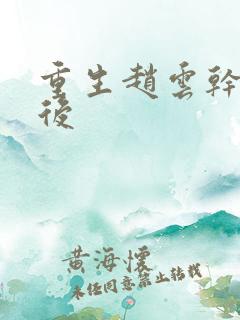 重生趙雲幹
後
黃海懷
未經同意禁止轉載